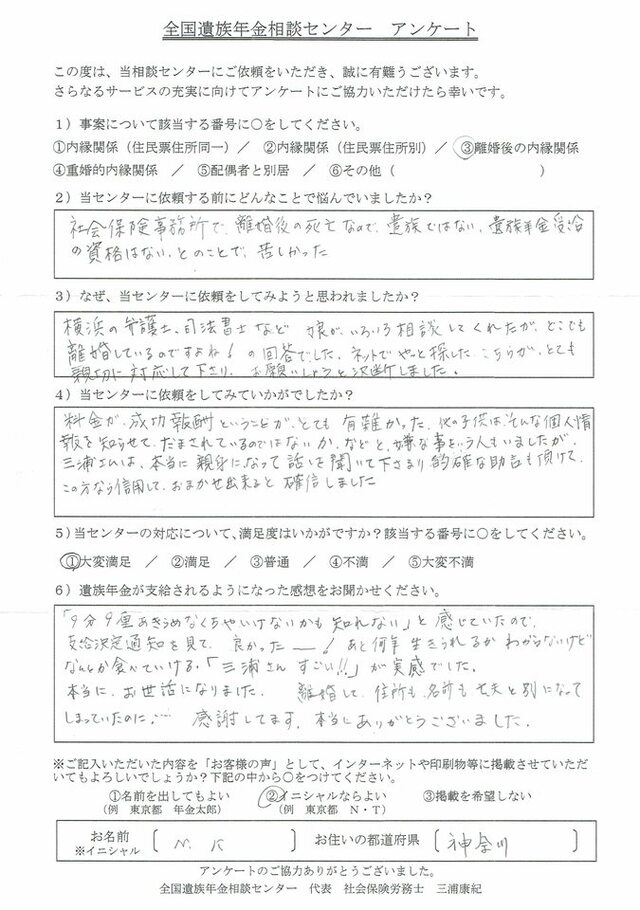 全国遺族年金相談センター　アンケート
この度は、当相談センターにご依頼をいただき、誠に有難うございます。
さらなるサービスの充実に向けてアンケートにご協力いただけたら幸いです。
1）事案について該当する番号に○をしてください。
①内縁関係（住民票住所同一）／　②内縁関係（住民票住所別）／　③離婚後の内縁関係
④重婚的内縁関係　／　⑤配偶者と別居　／　⑥その他（　　　　　　　　　　）
2）当センターに依頼する前にどんなことで悩んでいましたか？
社会保険事務所で、離婚後の死亡なので、遺族ではない、遺族年金受給
の資格はない、とのことで、苦しかった
3）なぜ、当センターに依頼をしてみようと思われましたか？
横浜の弁護士、司法書士など　娘が、いろいろ相談してくれたが、どこでも
離婚しているのですよね！の回答でした。ネットでやっと探した、こちらが、とても
親切に対応して下さり、お願いしようと決断しました。
4）当センターに依頼をしてみていかがでしたか？
料金が、成功報酬ということが、とても　有難かった。他の子供は、そんな個人情
報を知らせて、だまされているのではないか、などと、嫌な事をいう人もいましたが、
三浦さんは、本当に親身になって話しを聞いて下さり　的確な助言も頂けて、
この方なら信用して、おまかせ出来ると確信しました
5）当センターの対応について、満足度はいかがですか？該当する番号に○をしてください。
①大変満足　／　②満足　／　③普通　／　④不満　／　⑤大変不満
6）遺族年金が支給されるようになった感想をお聞かせください。
「9分9厘あきらめなくちゃいけないかも知れない」と感じていたので、
支給決定通知を見て、良かったー！　あと何年　生きられるか　わからないけど
なんとか食べていける。「三浦さん　すごい!!」が実感でした。
本当に、お世話になりました。　離婚して、住所も、名前も　丈夫と別になって
しまっていたのに、…　感謝してます。本当にありがとうございました。
※ご記入いただいた内容を「お客様の声」として、インターネットや印刷物等に掲載させていただ
いてもよろしいでしょうか？下記の中から○をつけてください。
①名前を出してもよい　②イニシャルならよい　③掲載を希望しない
（例　東京都　年金太郎）　（例　東京都　N・T）
お名前　〔　N. K　〕　お住いの都道府県　〔　神奈川　〕
※イニシャル
アンケートのご協力ありがとうございました。
全国遺族年金相談センター　代表　社会保険労務士　三浦康紀